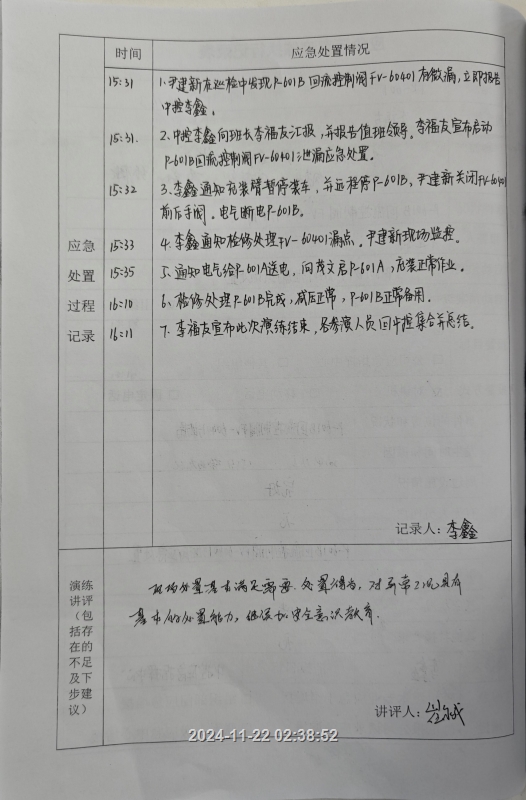 时间 应急处置情况
15:31 1.尹建新在巡检中发现P-601B回流控制阀FV-60401有微漏,立即报告
中控李鑫。
15:31. 2.中控李鑫向班长李福友汇报,并报告值班领导。李福友宣布启动
P-601B回流控制阀FV-60401泄漏应急处置。
15:32 3.李鑫通知充装臂暂停装车,并远程停P-601B、尹建新关闭FV-60401
前后手阀。电气断电P-601B。
应急 15:33 4.李鑫通知检修处理FV-60401漏点。尹建新现场监控。
处置 15:35 5.通知电气给P-601A送电,闫茂文启P-601A,充装正常作业。
过程 16:10 6、检修处理P-601B完成,试压正常,P-601B正常备用。
记录 16:11 7.李福友宣布此次演练结束,各参演人员回中控集合并总结。
记录人:李鑫
演练
讲评
(包
括存
在的
不足
及下
步建
议)
现场处置基本满足需要、处置得当,对异常工况具有
基本的处置能力,继续加安全意识教育.
讲评人:
2024-11-22 02:38:52